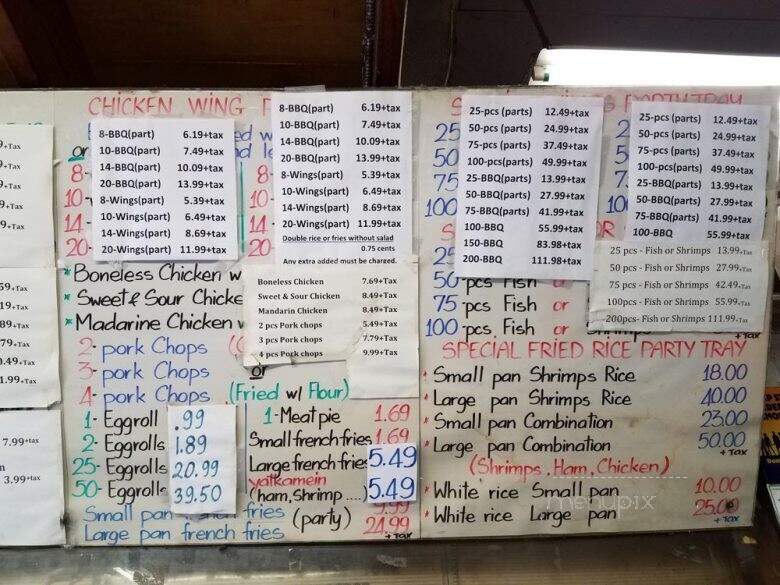 9.+Tax
9.+Tax
9.+Tax
9.+Tax
59.+Tax
19.+Tax
89+Tax
79+Tax
0.49.+Tax
1.99.+Tax
7.99+tax
3.99+tax
CHICKEN WING
8-BBQ(part) 6.19+tax
10-BBQ(part) 7.49+tax
14-BBQ(part) 10.09+tax
20-BBQ(part) 13.99+tax
8-Wings(part) 5.39+tax
10-Wings(part) 6.49+tax
14-Wings(part) 8.69+tax
20-Wings(part) 11.99+tax
or
8-
10-
14-
20-
8-BBQ(part) 6.19+tax
10-BBQ(part) 7.49+tax
14-BBQ(part) 10.09+tax
20-BBQ(part) 13.99+tax
8-Wings(part) 5.39+tax
10-Wings(part) 6.49+tax
14-Wings(part) 8.69+tax
20-Wings(part) 11.99+tax
Double rice or fries without salad
0.75 cents
Any extra added must be charged.
8-
10-
14-
20-
* Boneless Chicken w
* Sweet & Sour Chicke
* Madarine Chicken w
2- pork Chops
3- pork Chops
4- pork Chops
Boneless Chicken 7.69+Tax
Sweet & Sour Chicken 8.49+Tax
Mandarin Chicken 8.49+Tax
2 pcs Pork chops 5.49+Tax
3 pcs Pork chops 7.79+Tax
4 pcs Pork chops 9.99+Tax
or
(Fried w/ Flour)
1- Eggroll .99
2- Eggrolls 1.89
25- Eggrolls 20.99
50- Eggrolls 39.50
1-Meat pie 1.69
Small french fries 1.69
Large french fries 5.49
yatkamein
(ham, shrimp ....) 5.49
Small pan french fries
Large pan french fries
(party) 24.99
+Tax
PARTY TRAY
25-pcs (parts) 12.49+tax
50-pcs (parts) 24.99+tax
75-pcs (parts) 37.49+tax
100-pcs(parts) 49.99+tax
25-BBQ(parts) 13.99+tax
50-BBQ(parts) 27.99+tax
75-BBQ(parts) 41.99+tax
100-BBQ 55.99+tax
150-BBQ 83.98+tax
200-BBQ 111.98+tax
25
50
75
100
25-pcs (parts) 12.49+tax
50-pcs (parts) 24.99+tax
75-pcs (parts) 37.49+tax
100-pcs(parts) 49.99+tax
25-BBQ(parts) 13.99+tax
50-BBQ(parts) 27.99+tax
75-BBQ(parts) 41.99+tax
100-BBQ 55.99+tax
25 pcs - Fish or Shrimps 13.99+Tax
50 pcs - Fish or Shrimps 27.99+Tax
75 pcs - Fish or Shrimps 42.49+Tax
100pcs - Fish or Shrimps 55.99+Tax
200pcs- Fish or Shrimps 111.99+Tax
25
50-pcs Fish or
75-pcs Fish or
100-pcs Fish or Shrimps
+Tax
SPECIAL FRIED RICE PARTY TRAY
* Small pan Shrimps Rice 18.00
* Large pan Shrimps Rice 40.00
* Small pan Combination 23.00
* Large pan Combination 50.00
+ Tax
(Shrimps, Ham, Chicken)
* White rice Small pan 10.00
* White rice Large pan 25.00
+ Tax
menupix